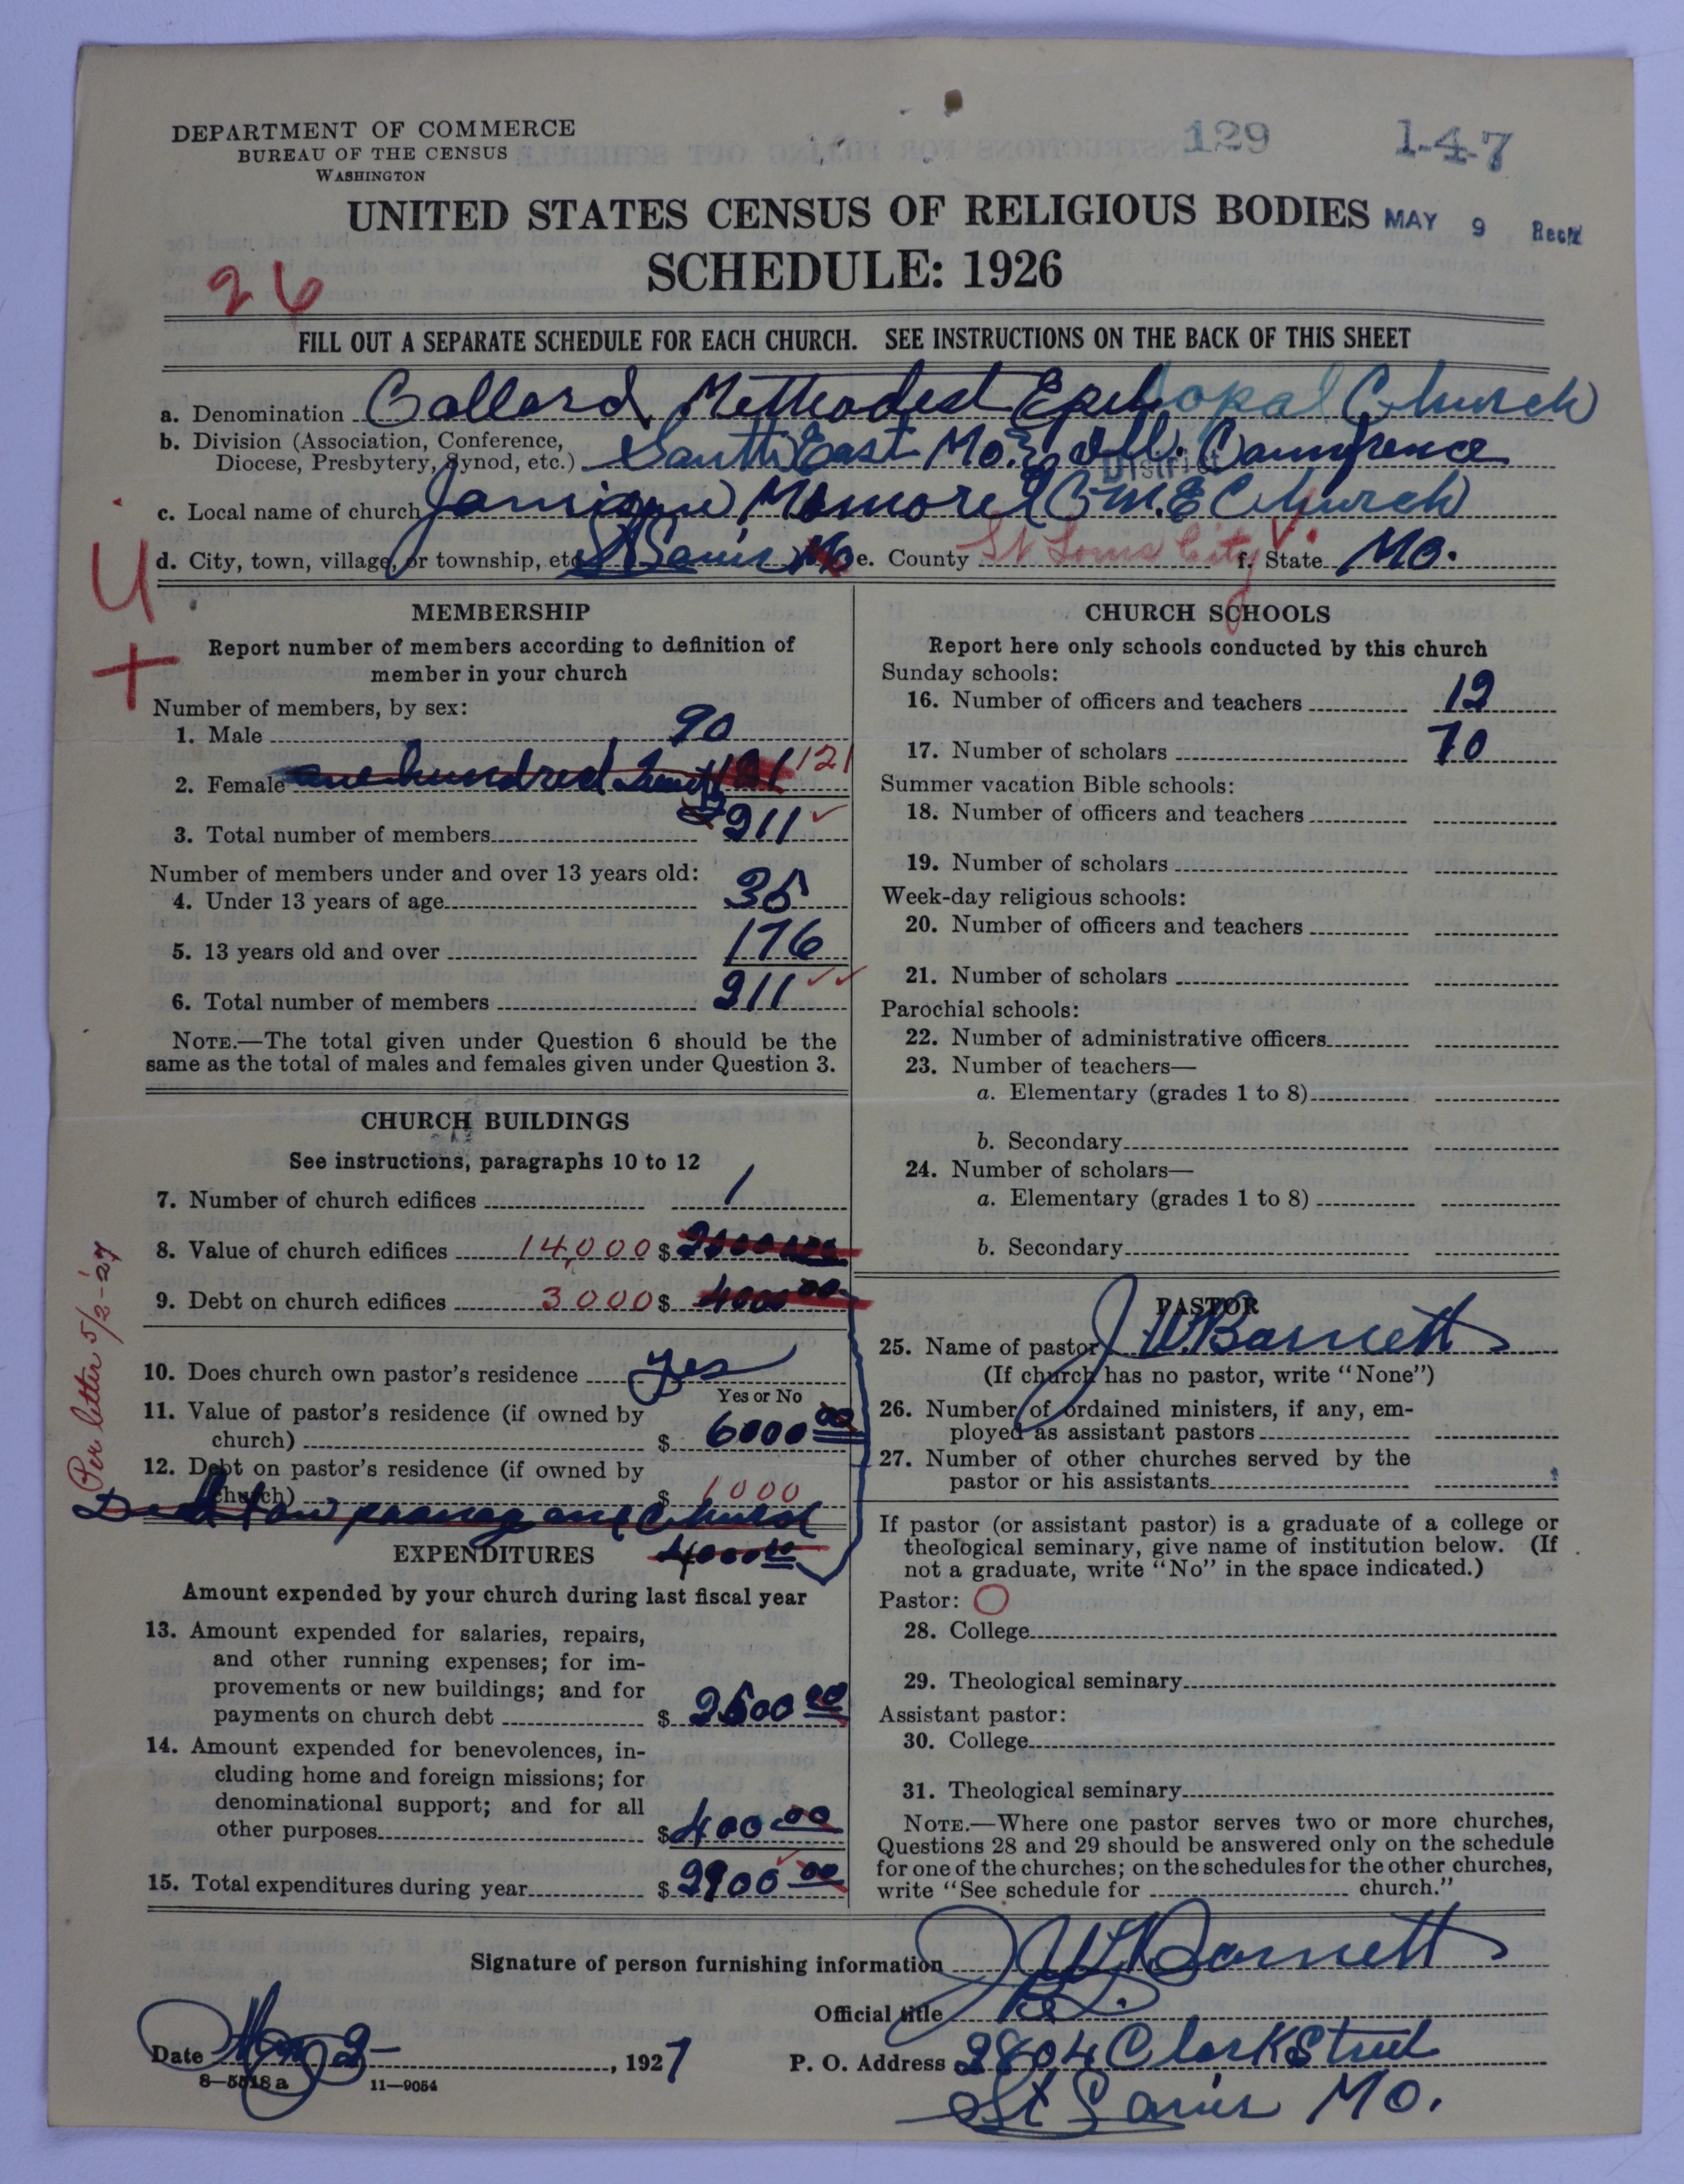 DEPARTMENT OF COMMERCE
BUREAU OF THE CENSUS
WASHINGTON
129
1-4-7
UNITED STATES CENSUS OF RELIGIOUS BODIES
MAY 9 Rec'd
SCHEDULE: 1926
26
FILL OUT A SEPARATE SCHEDULE FOR EACH CHURCH. SEE INSTRUCTIONS ON THE BACK OF THIS SHEET
a. Denomination Collord Methodest Episcopal Church
b. Division (Association, Conference,
Diocese, Presbytery, Synod, etc.) South East Mo. & Ill. Counfrence
District
c. Local name of church Memorel C.M.E Church
d. City, town, village, or township, etc. St Louis Mo e. County St Louis City f. State Mo.
U
+
MEMBERSHIP
Report number of members according to definition of
member in your church
Number of members, by sex:
1. Male 90
2. Female one hundred 121 121
3. Total number of members 211
Number of members under and over 13 years old:
4. Under 13 years of age 35
5. 13 years old and over 176
6. Total number of members 211
NOTE.—The total given under Question 6 should be the
same as the total of males and females given under Question 3.
CHURCH BUILDINGS
See instructions, paragraphs 10 to 12
7. Number of church edifices 1
8. Value of church edifices 14,000 $
9. Debt on church edifices 3000 $ 4000 00
Per letter 5/2-'27
10. Does church own pastor's residence yes
Yes or No
11. Value of pastor's residence (if owned by
church) $ 6000 00
12. Debt on pastor's residence (if owned by
church) $ 1000
Debt on and Church
4000 00
EXPENDITURES
Amount expended by your church during last fiscal year
13. Amount expended for salaries, repairs,
and other running expenses; for im-
provements or new buildings; and for
payments on church debt $ 2500 00
14. Amount expended for benevolences, in-
cluding home and foreign missions; for
denominational support; and for all
other purposes $ 400 00
15. Total expenditures during year $ 2900 00
CHURCH SCHOOLS
Report here only schools conducted by this church
Sunday schools:
16. Number of officers and teachers 12
17. Number of scholars 70
Summer vacation Bible schools:
18. Number of officers and teachers
19. Number of scholars
Week-day religious schools:
20. Number of officers and teachers
21. Number of scholars
Parochial schools:
22. Number of administrative officers
23. Number of teachers—
a. Elementary (grades 1 to 8)
b. Secondary
24. Number of scholars—
a. Elementary (grades 1 to 8)
b. Secondary
PASTOR
25. Name of pastor J. W. Barnett
(If church has no pastor, write "None")
26. Number of ordained ministers, if any, em-
ployed as assistant pastors
27. Number of other churches served by the
pastor or his assistants
If pastor (or assistant pastor) is a graduate of a college or
theological seminary, give name of institution below. (If
not a graduate, write "No" in the space indicated.)
Pastor: O
28. College
29. Theological seminary
Assistant pastor:
30. College
31. Theological seminary
NOTE.—Where one pastor serves two or more churches,
Questions 28 and 29 should be answered only on the schedule
for one of the churches; on the schedules for the other churches,
write "See schedule for church."
Signature of person furnishing information J W Barnett
Official title
Date May 2-, 1927
P. O. Address 2804 Clark Street
St Louis Mo.
8-5518a 11-9054